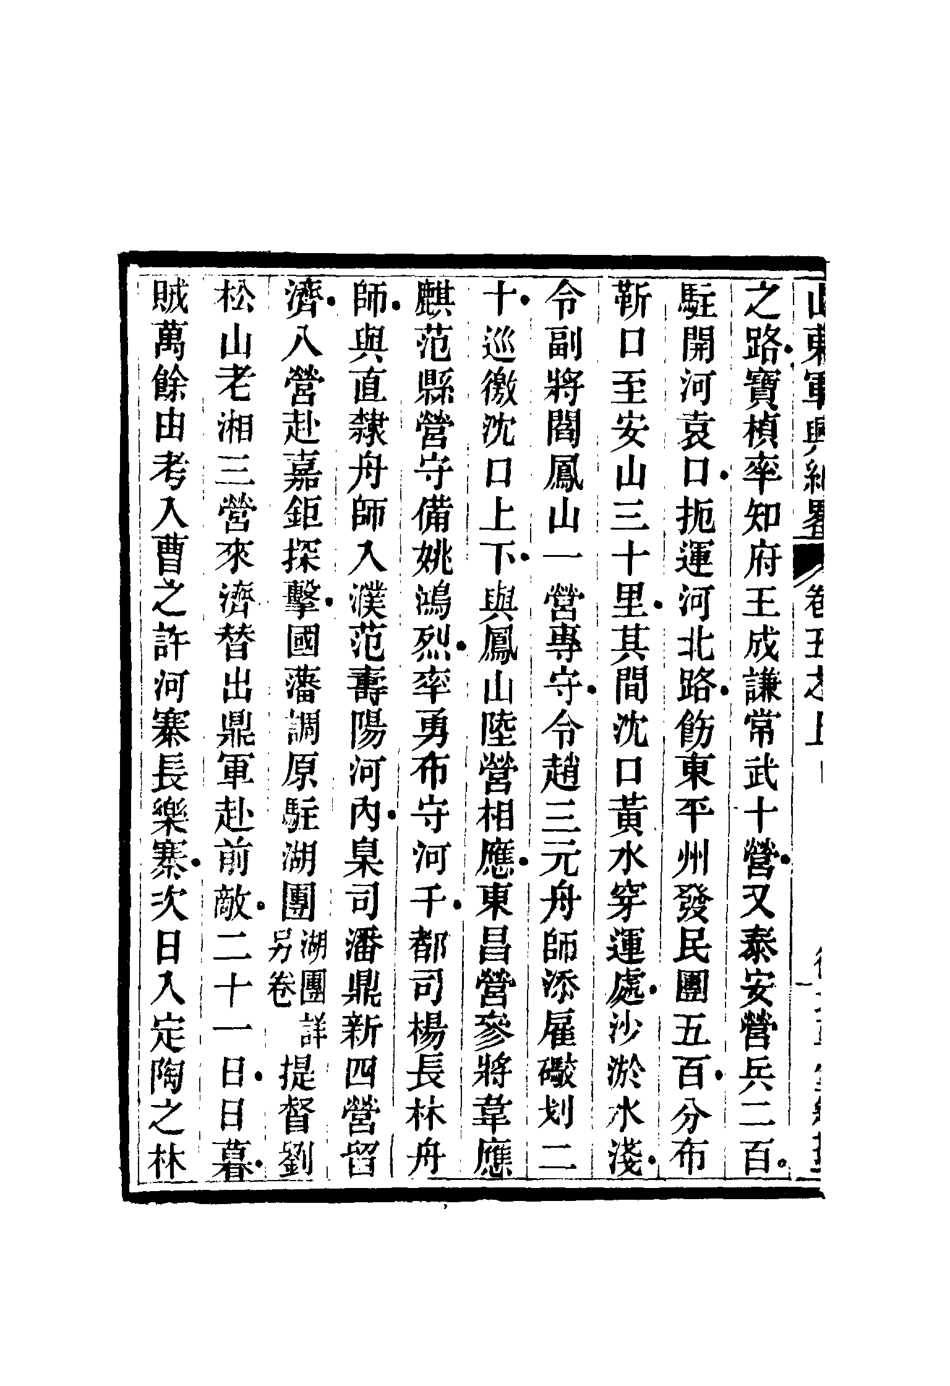 山東軍興紀畧 卷五之上
之路寶楨率知府王成謙常武十營又泰安營兵二百
駐開河袁口扼運河北路飭東平州發民團五百分布
靳口至安山三十里其間沈口黃水穿運處沙淤水淺
令副將閻鳳山一營專守令趙三元舟師添雇礮划二
十巡徼沈口上下與鳳山陸營相應東昌營參將韋應
麒范縣營守備姚鴻烈率勇布守河干都司楊長林舟
師與直隸舟師入濮范壽陽河內臬司潘鼎新四營留
濟八營赴嘉鉅探擊國藩調原駐湖團湖團詳另卷提督劉
松山老湘三營來濟替出鼎軍赴前敵二十一日日暮
賊萬餘由考入曹之許河寨長樂寨次日入定陶之林